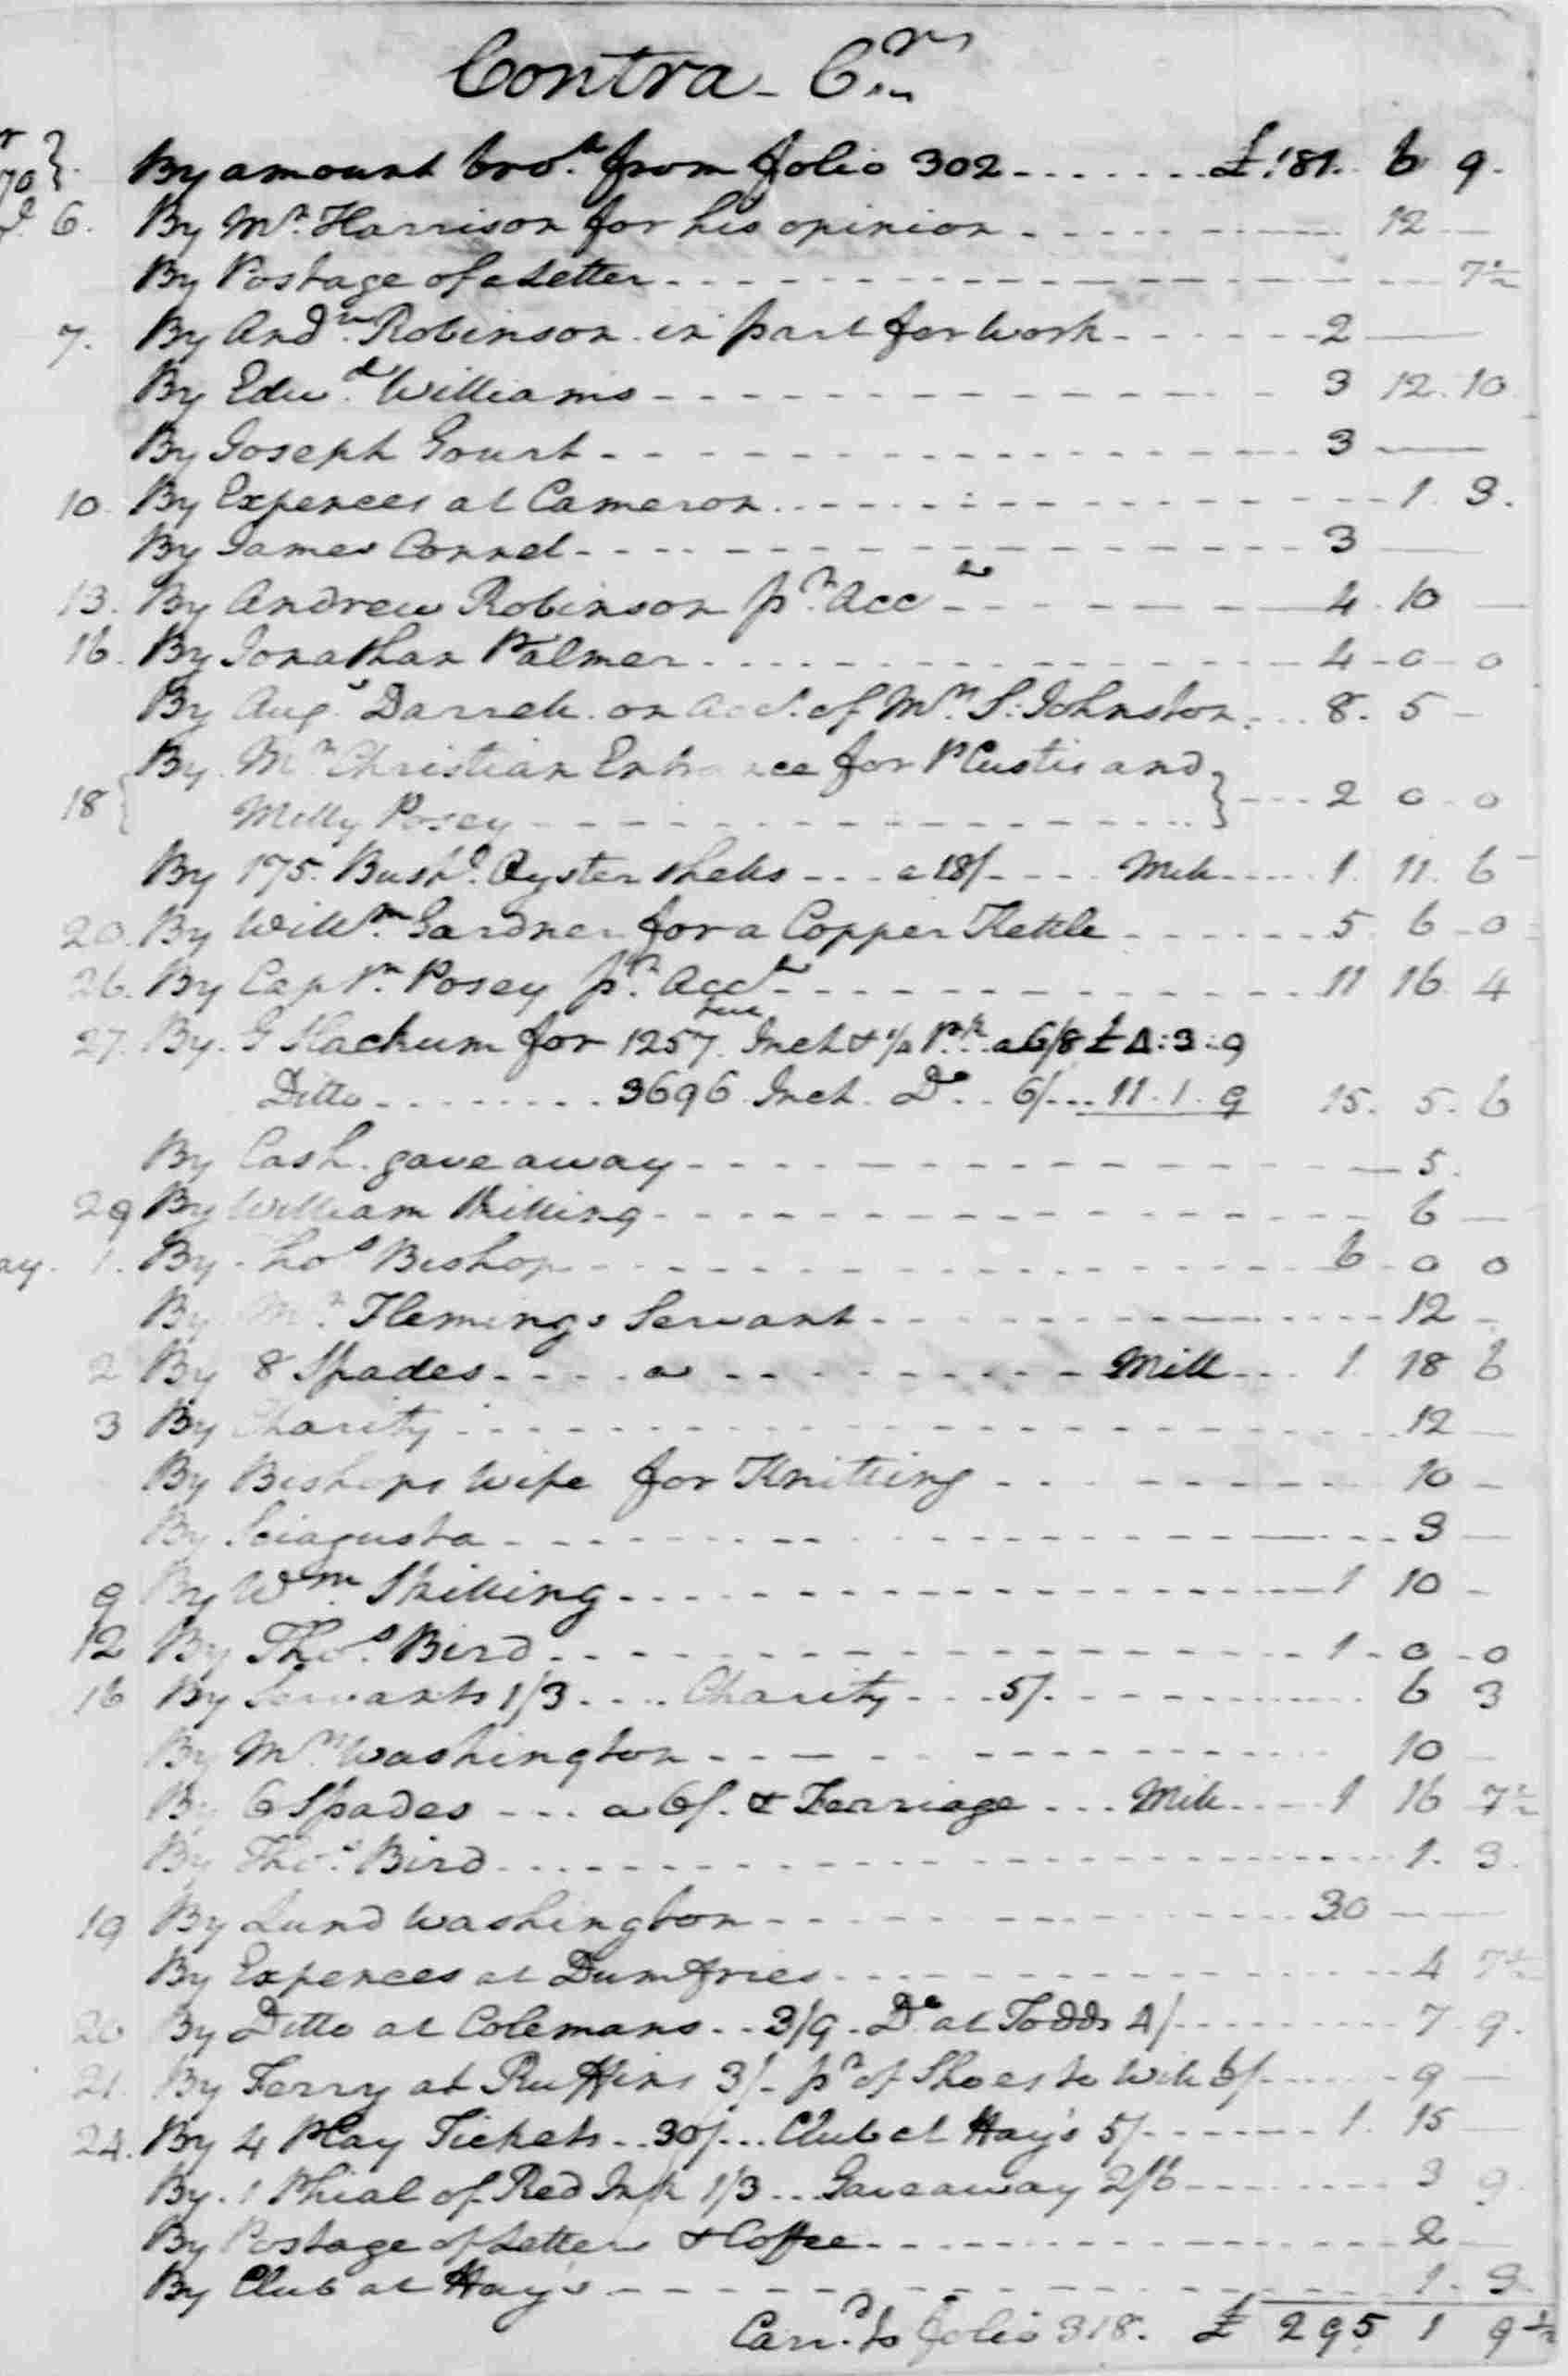 Contra - Crs
r
70 } By amount brot. from folio 302 ....... £181. 6 9.
6. By Mr. Harrison for his opinion - 12 -
By Postage of a Letter - 7½
7. By Andw. Robinson in part for Work - 2 -
By Edwd. Williams - 3 12. 10
By Joseph Gourt - 3 -
10. By Expences at Cameron - 1. 3.
By James Connel - 3 -
13. By Andrew Robinson pr. Acct - 4. 10 -
16. By Jonathan Palmer - 4 - 0 - 0
By Augs. Darrell on Acct. of Mr. S: Johnston - 8. 5 -
By Mr. Christian Entrance for P Custis and }
18 { Milly Posey - 2 0 - 0
By 175. Bushls. Oyster Shells - a 18/ - Mill - 1. 11. 6
20. By Willm. Gardner for a Copper Kettle - 5. 6 - 0
26. By Captn. Posey pr. Acct - 11 16. 4
27. By G Hackum for 1257 Inch & ¼ a 6/8 £4:3:9
Ditto - 3696 Inch Do. 6/ - 11. 1. 9 15. 5. 6
By Cash gave away - 5.
29 By William Skilling - 6 -
ay. 1. By Thos Bishop - 6 - 0 0
By Mr. Flemings Servant - 12 -
2 By 8 Spades - a - Mill - 1. 18 6
3 By Charity - 12 -
By Bishops Wife for Knitting - 10 -
By Sciagusta - 3 -
9 By Wm. Skilling - 1 10 -
12 By Thos. Bird - 1 - 0 - 0
16 By Servants 1/3 .... Charity - 5/. - 6 3
By Mrs. Washington - 10 -
By 6 Spades - a 6/. & Ferriage - Mill - 1 16 7½
By Thos. Bird - 1. 3.
19 By Lund Washington - 30 -
By Expences at Dumfries - 4 7½
20 By Ditto at Colemans - 3/9 - Do at Todds 4/ - 7 - 9.
21. By Ferry at Ruffins 3/- pr of Shoes to Will 6/ - 9 -
24. By 4 Play Tickets - 30/ - Club at Hay's 5/ - 1. 15 -
By. 1 Phial of Red Ink 1/3 - Gave away 2/6 - 3 9.
By Postage of Letters & Coffee - 2 -
By Club at Hay's - 1. 3
Carrd. to folio 318. £ 295 1 9½